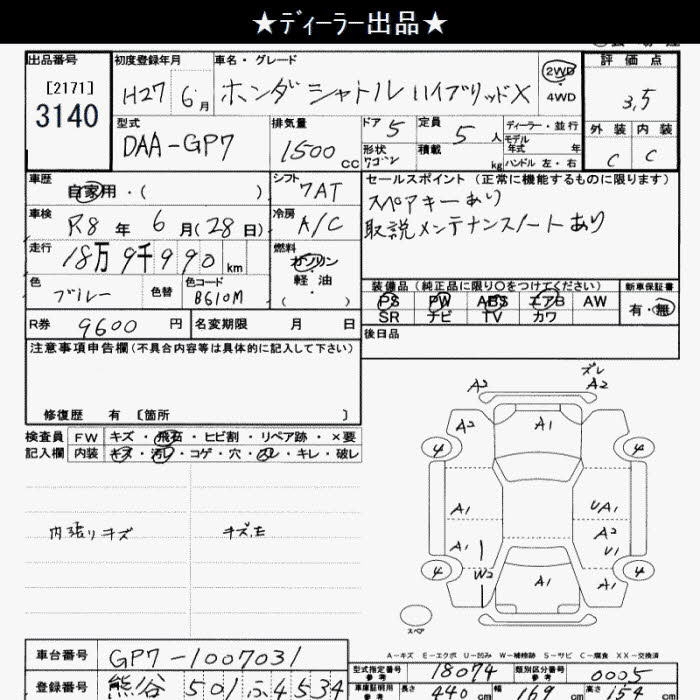 ★ディーラー出品★
出品番号 初度登録年月 車名・グレード 評価点
[2171] H27 6月 ホンダ シャトル ハイブリッドX 2WD 3.5
3140 4WD
型式 排気量 ドア 5 定員 5人 ディーラー・並行 外装 内装
DAA-GP7 1500cc 形状 ワゴン 積載 kg モデル年式 年 C C
ハンドル 左・右
車歴 自家用・( ) シフト 7AT セールスポイント (正常に機能するものに限ります)
車検 R8年 6月(28日) 冷房 A/C スペアキーあり
取説メンテナンスノートあり
走行 18万9千990km 燃料 ガソリン・軽油・( )
色 ブルー 色替 色コード B610M
装備品 (純正品に限り○をつけてください) 新車保証書
PS PW ABS エアB AW 有・無
SR ナビ TV カワ
R券 9600円 名変期限 月 日 後日品
注意事項申告欄(不具合内容等は具体的に記入して下さい)
修復歴 有 〔箇所 〕
検査員 FW キズ・飛石・ヒビ割・リペア跡・×要
記入欄 内装 キズ・汚レ・コゲ・穴・スレ・キレ・破レ
内張りキズ
ズレ
A2 A2
A2 A1
4 4
A1 UA1
A2
A1 U1
4 W2 A1 A1 4
スペア
A-キズ E-エクボ U-凹み W-補修跡 S-サビ C-腐食 XX-交換済
車台番号 GP7-1007031
型式指定番号 参考 18074 類別区分番号 参考 0005
登録番号 熊谷 501 ふ 4534
車庫証明用 参考 長さ 440cm 幅 169cm 高さ 154cm